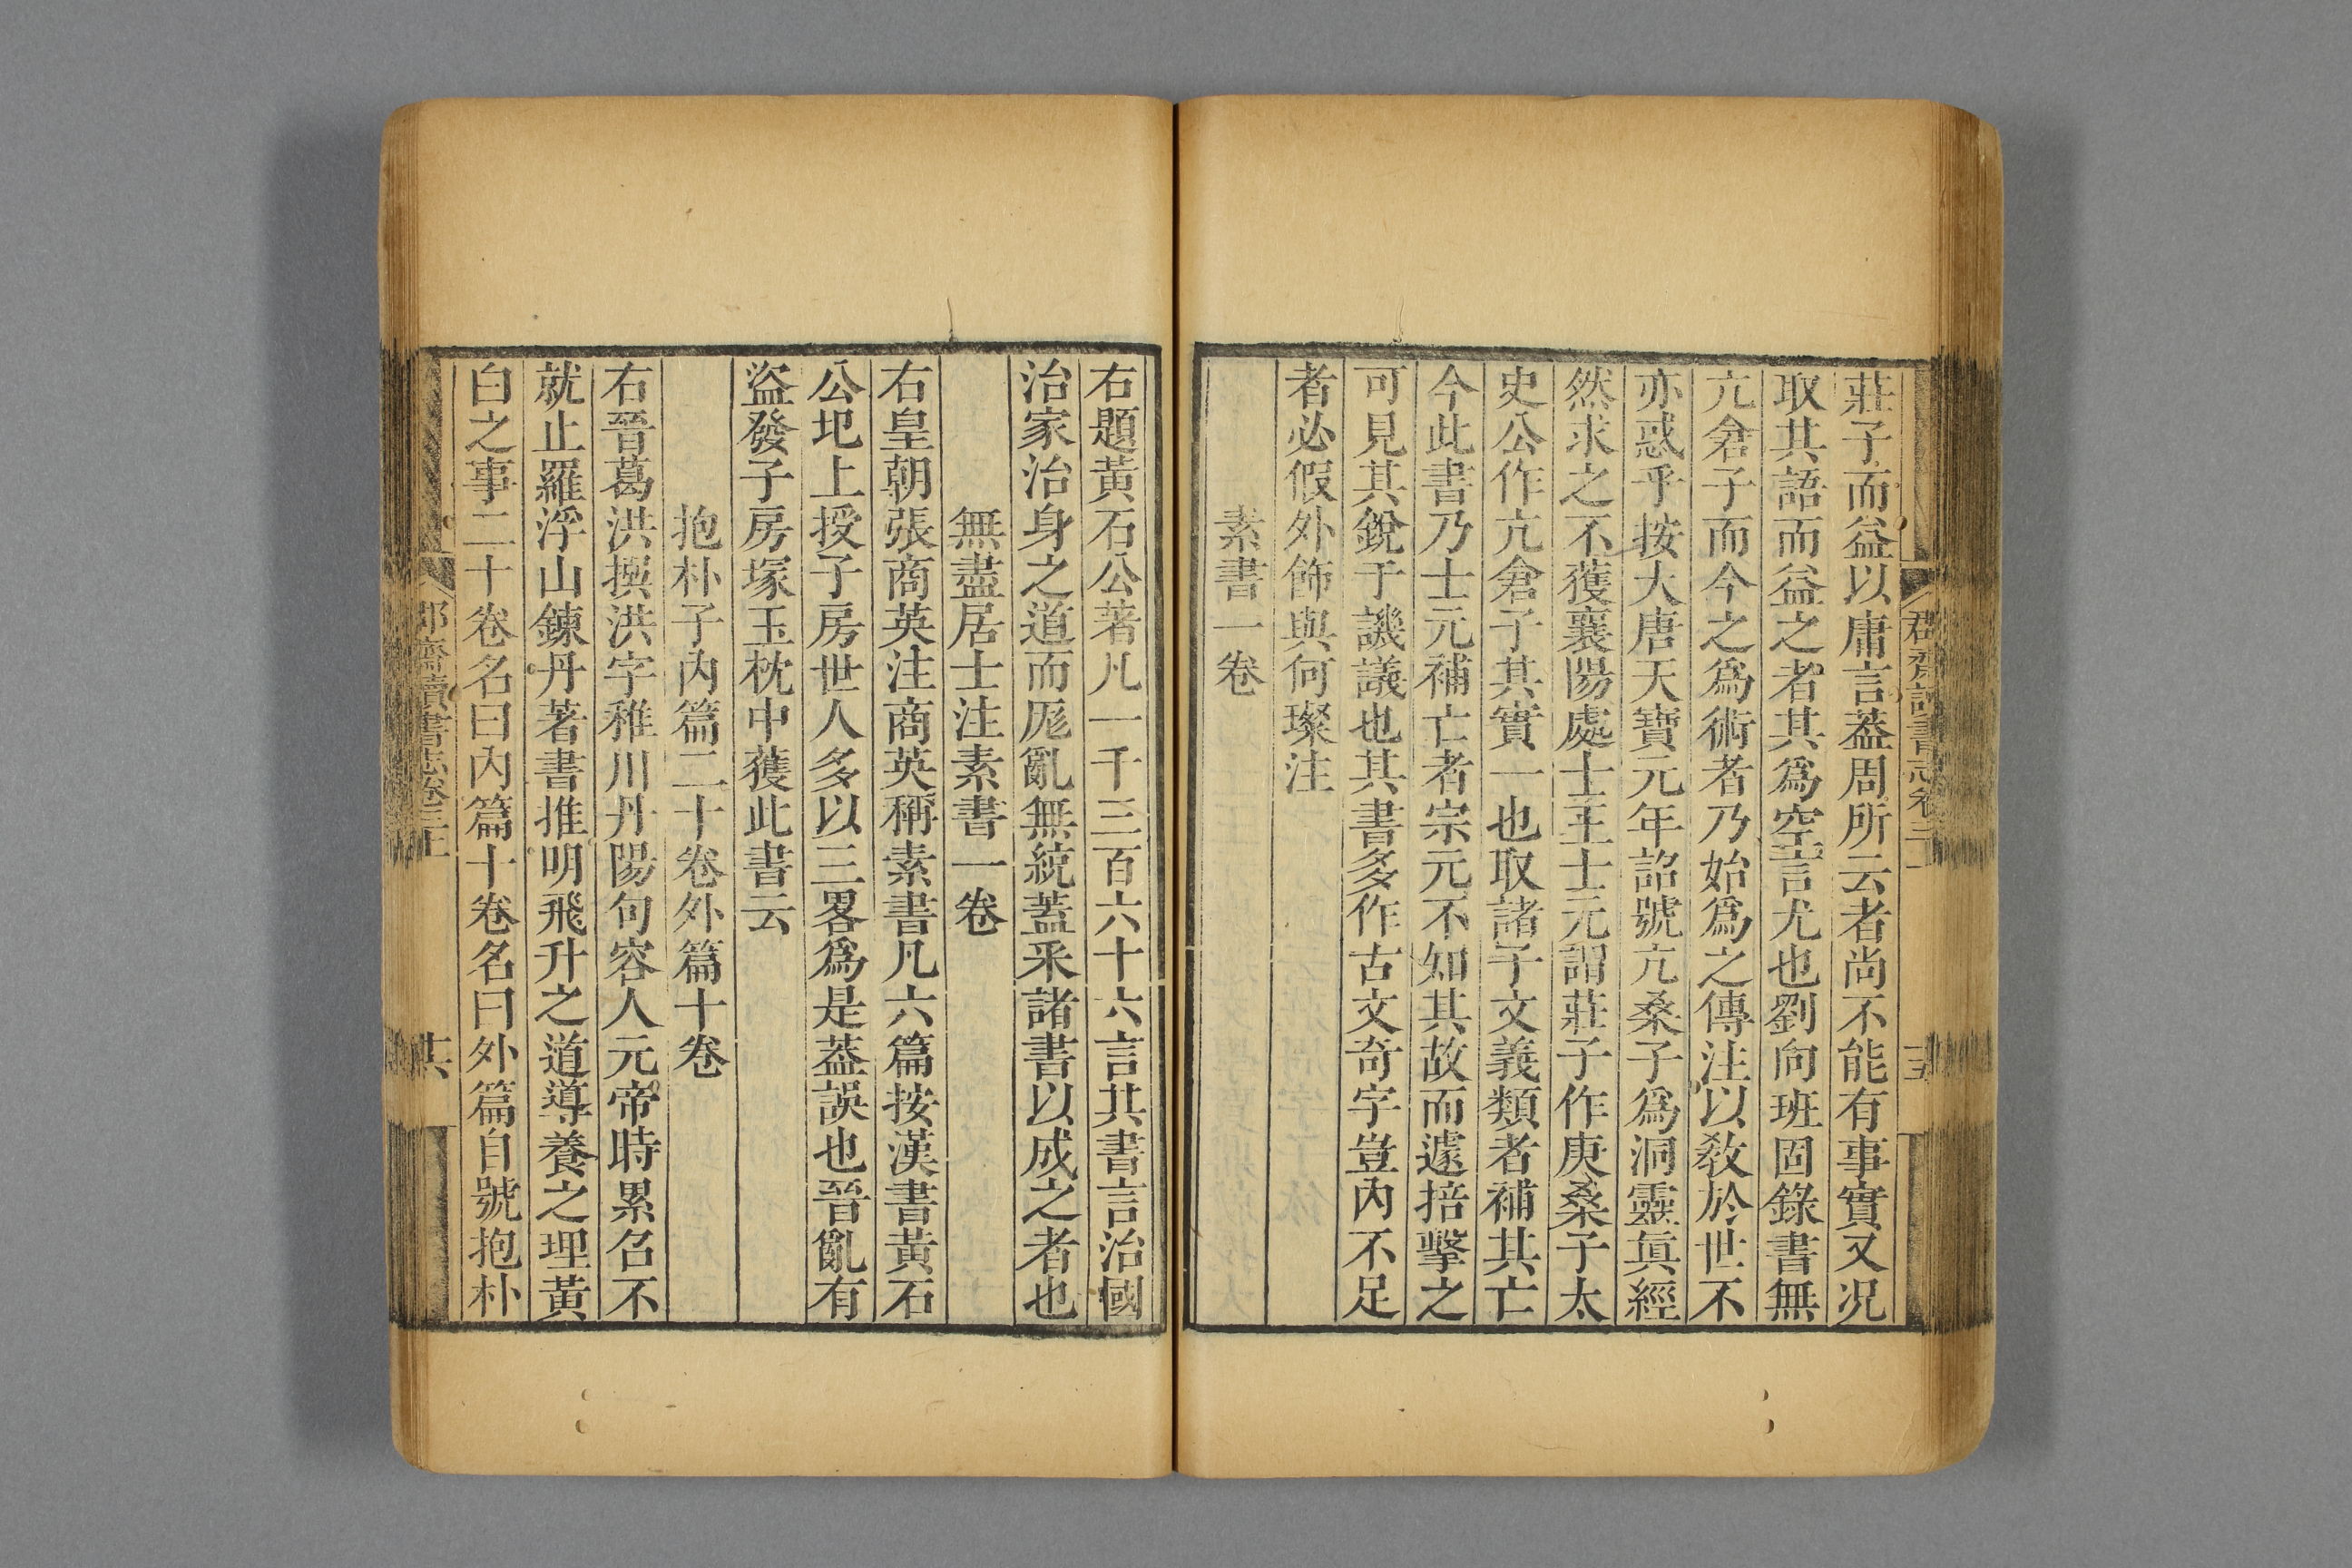 莊子而益以庸言蓋周所云者尚不能有事實又况
取其語而益之者其爲空言尤也劉向班固錄書無
亢倉子而今之爲術者乃始爲之傳注以敎於世不
亦惑乎按大唐天寶元年詔號亢桑子爲洞靈眞經
然求之不獲襄陽處士王士元謂莊子作庚桑子太
史公作亢倉子其實一也取諸子文義類者補其亡
今此書乃士元補亡者宗元不如其故而遽掊擊之
可見其銳于譏議也其書多作古文奇字豈內不足
者必假外飾與何璨注
素書一卷
右題黃石公著凡一千三百六十六言其書言治國
治家治身之道而厖亂無統蓋采諸書以成之者也
無盡居士注素書一卷
右皇朝張商英注商英稱素書凡六篇按漢書黃石
公圯上授子房世人多以三畧爲是葢誤也晉亂有
盜發子房塚玉枕中獲此書云
抱朴子內篇二十卷外篇十卷
右晉葛洪撰洪字稚川丹陽句容人元帝時累召不
就止羅浮山鍊丹著書推明飛升之道導養之理黃
白之事二十卷名曰內篇十卷名曰外篇自號抱朴